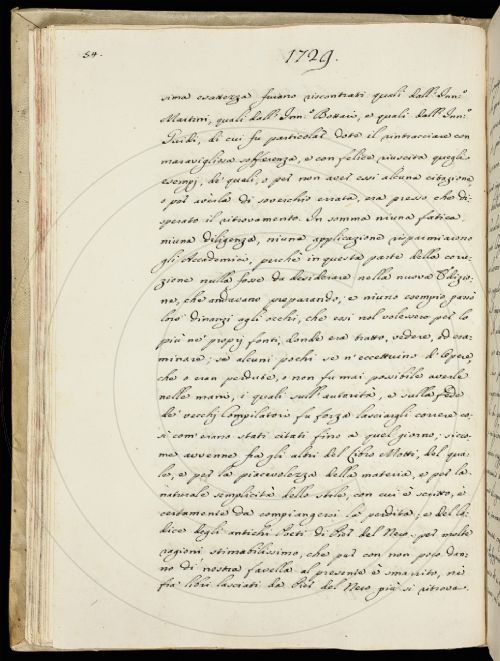 54.
1729.
sima esattezza furono riscontrati quali dall' Inn.º
Martini, quali dall' Inn.º Bottari, e quali dall' Inn.º
di cui fu particolar dote il rintracciare con
maravigliosa sofferenza, e con felice riuscita quegli
esempj, de' quali, o per non aver essi alcuna citazione,
o per averla di soverchio errata, era presso che di-
sperato il ritrovamento. In somma niuna fatica,
niuna diligenza, niuna applicazione risparmiarono
gli Accademici, perchè in questa parte della corre-
zione nulla fosse da desiderare nella nuova Edizio-
ne, che andavano preparando; e niuno esempio passò
loro dinanzi agli occhi, che essi nol volessero per lo
più ne' proprj fonti, donde era tratto, vedere, ed esa-
minare; se alcuni pochi se n' eccettuino d' Opere
che o eran perdute, o non fu mai possibile averle
nelle mani, i quali sull' autorità, e sulla fede
de' vecchj Compilatori fu forza lasciargli correre co-
sì com' erano stati citati fino a quel giorno; sico-
me avvenne fra gli altri del Libro Motti, del qua-
le, e per la piacevolezza della materia, e per la
naturale semplicità dello stile, con cui è scritto, è
certamente da compiangersi la perdita; e del Co-
dice degli antichi Poeti di Pier del Nero per molte
ragioni stimabilissimo, che pur con non poco dan-
no di nostra favella al presente è smarrito, nè
fra libri lasciati da Pier del Nero più si ritrova.